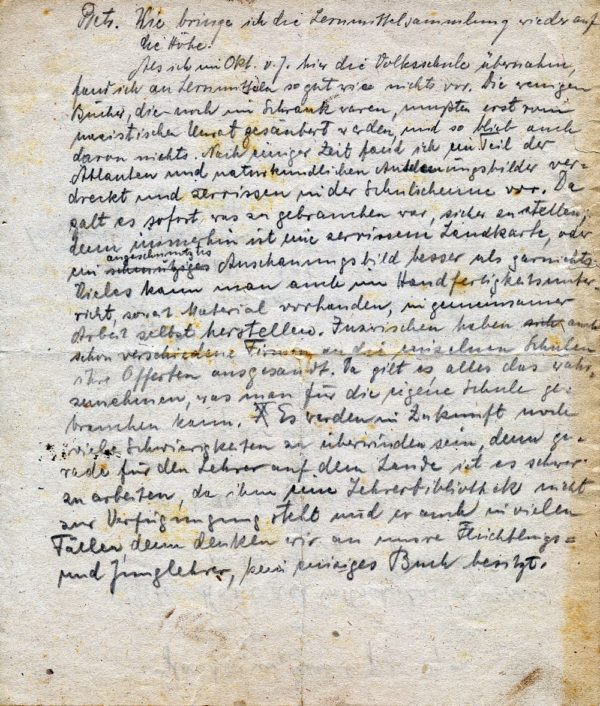 Betr. Wie bringe ich die Lernmittelsammlung wieder auf
die Höhe.
Als ich im Okt. v. J. hier die Volksschule übernahm,
fand ich an Lernmitteln so gut wie nichts vor. Die wenigen
Bücher, die noch im Schrank waren, mußten erst vom
nazistischen Unrat gesäubert werden, und so blieb auch
davon nichts. Nach einiger Zeit fand ich ein Teil der
Atlanten und naturkundlichen Anschauungsbilder ver-
dreckt und zerrissen in der Schulscheune vor. Da
galt es sofort, was zu gebrauchen war, sicher zu stellen,
denn immerhin ist eine zerrissene Landkarte, oder
angeschmutztes
ein schmutziges Anschauungsbild besser als garnichts.
Vieles kann man auch im Handfertigkeitsunter-
richt, soweit Material vorhanden, in gemeinsamer
Arbeit selbst herstellen. Inzwischen haben sich auch
schon verschiedene Firmen an die einzelnen Schulen
ihre Offerten ausgesandt. Da gilt es alles das wahr-
zunehmen, was man für die eigene Schule ge-
brauchen kann. Es werden in Zukunft noch
viele Schwierigkeiten zu überwinden sein, denn ge-
rade für den Lehrer auf dem Lande ist es schwer
zu arbeiten, da ihm eine Lehrerbibliothek nicht
zur Verfügung steht und er auch in vielen
Fällen, denn denken wir an unsre Flüchtlings-
und Junglehrer, kein einziges Buch besitzt.